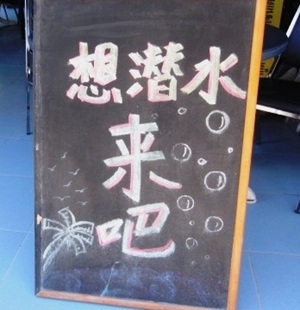 想潜水
来
吧